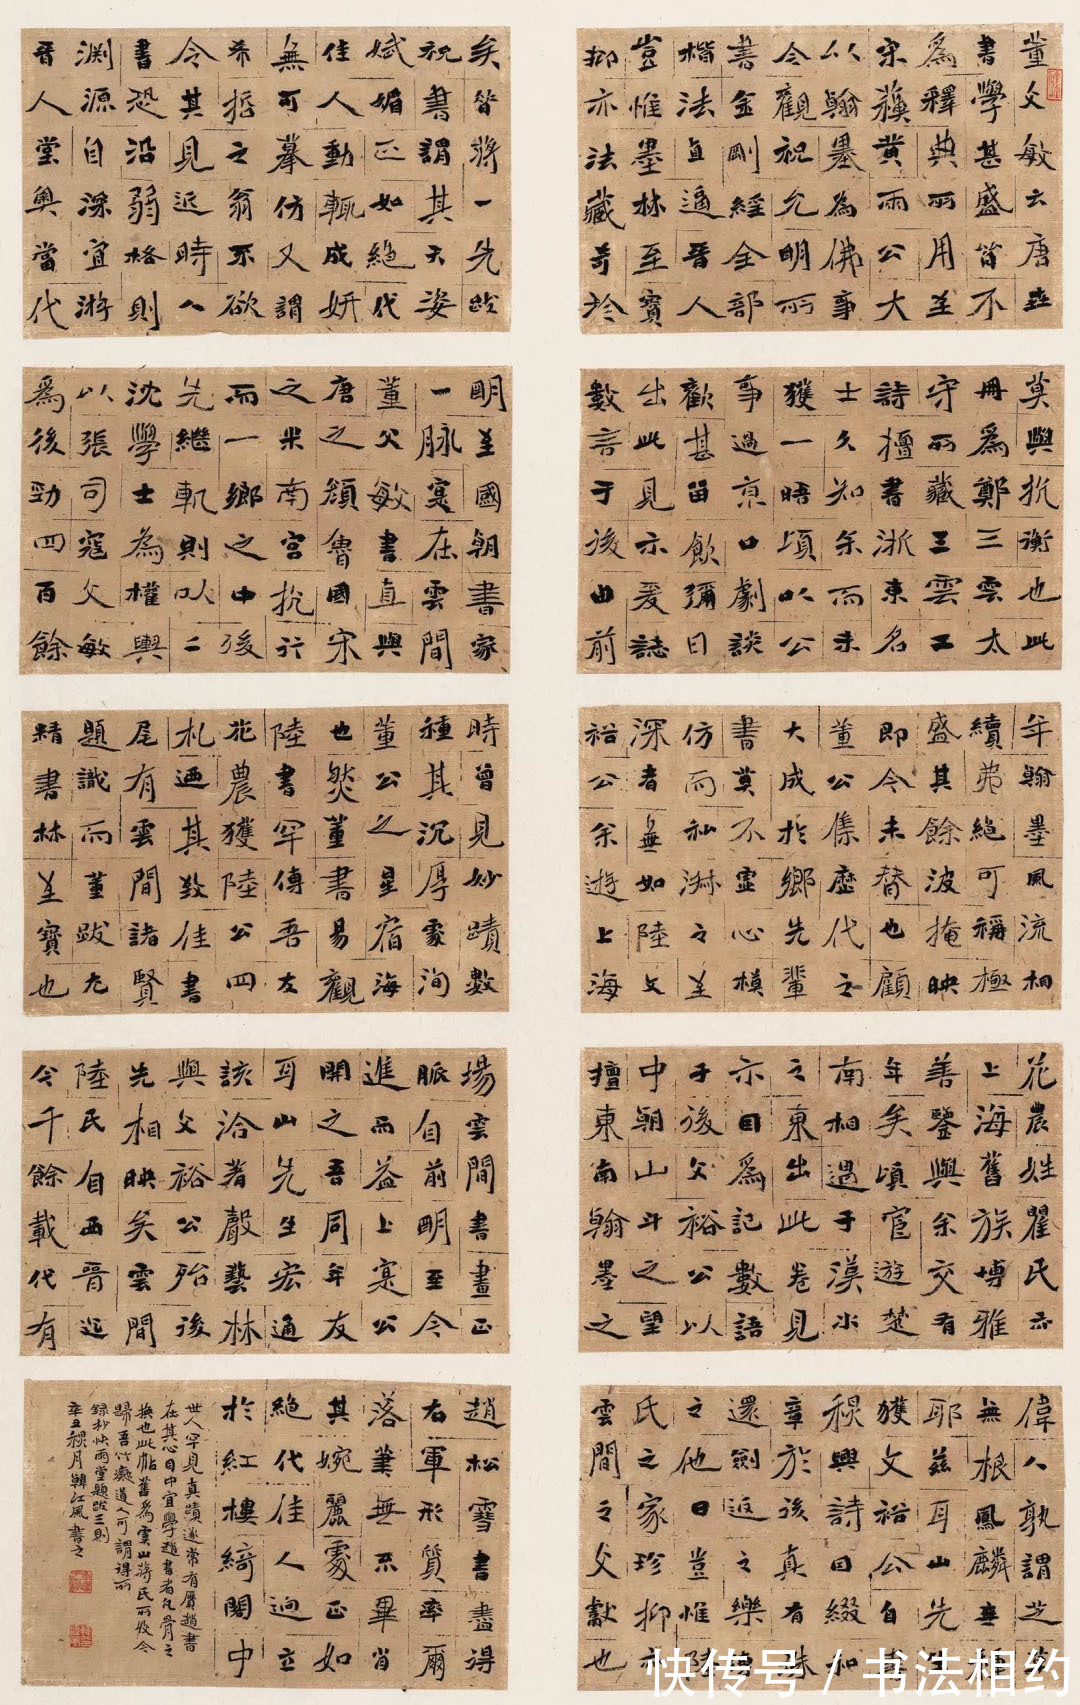 董文敏云唐世
書學甚盛皆不
為釋典所用至
宋蘇黄兩公大
以翰墨為佛事
今觀祝允明所
書金剛經全部
楷法直逼晉人
豈惟墨林至寳
抑亦法藏奇珍
矣昔蔣一先跋
祝書謂其天姿
斌媚正如絶代
佳人動輒成妍
無可摹仿又謂
希哲之翁不欲
令其見近時人
書恐沿弱格則
渊源自深宜游
晋人堂奥當代
莫與抗衡也此
冊為鄭三雲太
守所藏三雲工
詩擅書浙東名
士久知余而未
獲一晤頃以公
事過京口劇談
歡甚留飲彌日
出此見示爰誌
數言于後由前
明至國朝書家
一脉寔在雲間
董文敏書直與
唐之顔魯國宋
之米南宮抗行
而一鄉之中後
先繼軌則以二
沈學士為權輿
以張司寇文敏
為後勁四百餘
年翰墨風流相
續弗絶可稱極
盛其餘波掩映
即今未替也顧
董公集歷代之
大成於鄉先輩
書莫不靈心模
仿而私淑之至
深者無如陸文
裕公余遊上海
時曾見妙蹟數
種其沉厚處洵
董公之星宿海
也然董書易觀
陸書罕傳吾友
花農獲陸公四
札迺其致佳書
尾有雲間諸賢
題識而董跋尤
精書林至寳也
花農姓瞿氏亦
上海舊族博雅
善鑒與余交有
年矣頃宦遊楚
南相遇于漢水
之東出此卷見
示因為記數語
于後文裕公以
中朝山斗之望
擅東南翰墨之
場雲間書畫正
脈自前明至今
進而益上寔公
開之吾同年友
耳山先生宏通
該洽著聲藝林
與文裕公殆後
先相映矣雲間
陸氏自西晉迄
今千餘載代有
偉人孰謂芝
無根鳳麟無種
耶兹耳山先生
獲文裕公自書
稷興詩因綴和
章於後真有珠
還劍返之樂
之他日豈惟陸
氏之家珍抑亦
雲間之文獻也
趙松雪書盡得
右軍形質率爾
落筆無不畢肖
其婉麗處正如
絶代佳人迥立
於紅樓綺閣中
世人罕見真蹟遂常有贋趙書
在其心目中宜學趙書者凡骨之
换也此帖舊為雲山蔣氏所收今
歸吾竹癡道人可謂得所
録抄快雨堂題跋三則
辛丑稷月韓江風書之
快传号 / 书法相约